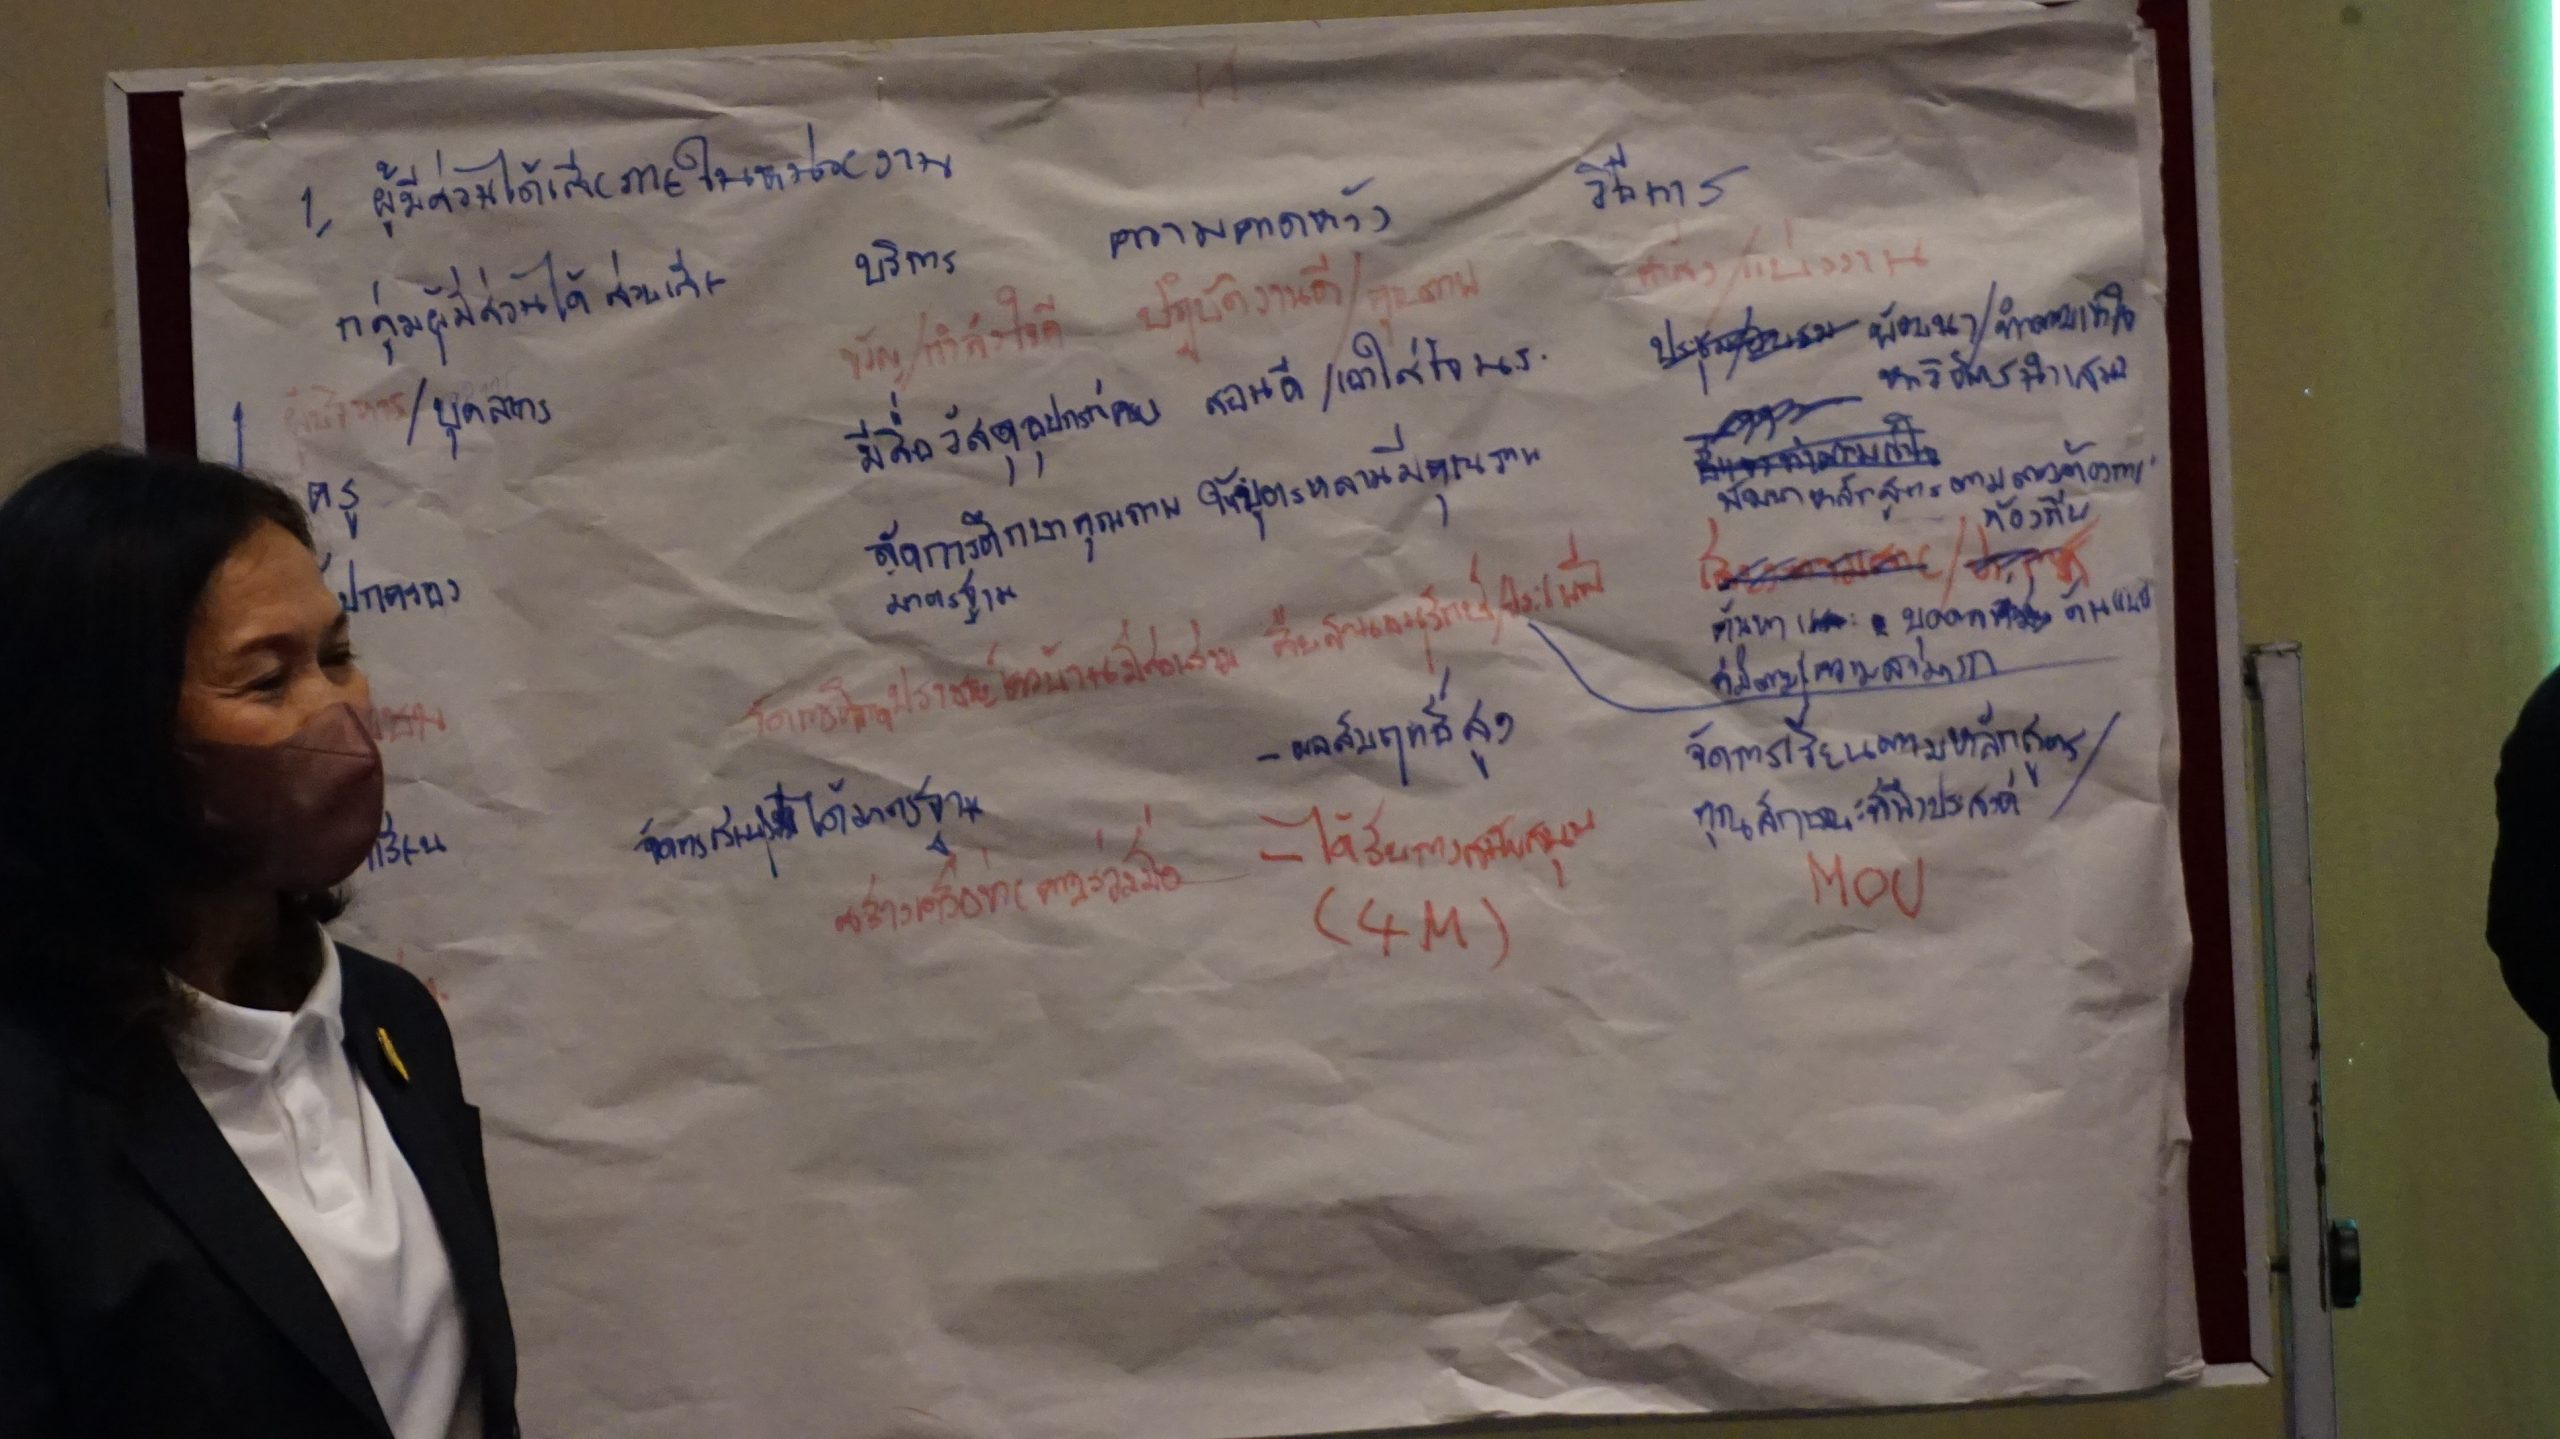 1. ผู้มีส่วนได้เสียภายในหน่วยงาน
กลุ่มผู้มีส่วนได้ส่วนเสีย บริการ ความคาดหวัง วิธีการ
ผู้บริหาร/บุคลากร ขวัญ/กำลังใจดี ปฏิบัติงานดี/คุณภาพ คำสั่ง/แบ่งงาน
ครู มีสื่อวัสดุอุปกรณ์ครบ สอนดี/เอาใจใส่ นร. ประชุม/อบรม พัฒนา/ทำความเข้าใจ
หาวิธีการนำเสนอ
ปกครอง จัดการศึกษาคุณภาพ ให้บุตรหลานมีคุณภาพ พัฒนาหลักสูตรตามความต้องการ
มาตรฐาน ท้องถิ่น
ปราชญ์ชาวบ้านมีส่วนร่วม สืบสานอนุรักษ์/ประเพณี
ค้นหา บุคคล ด้าน
ที่มีความรู้ความสามารถ
เรียน จัดการเรียนรู้ ได้มาตรฐาน - ผลสัมฤทธิ์สูง จัดการเรียนตามหลักสูตร/
คุณลักษณะที่พึงประสงค์
สร้างเครือข่ายความร่วมมือ - ได้รับการสนับสนุน MOU
(4M)